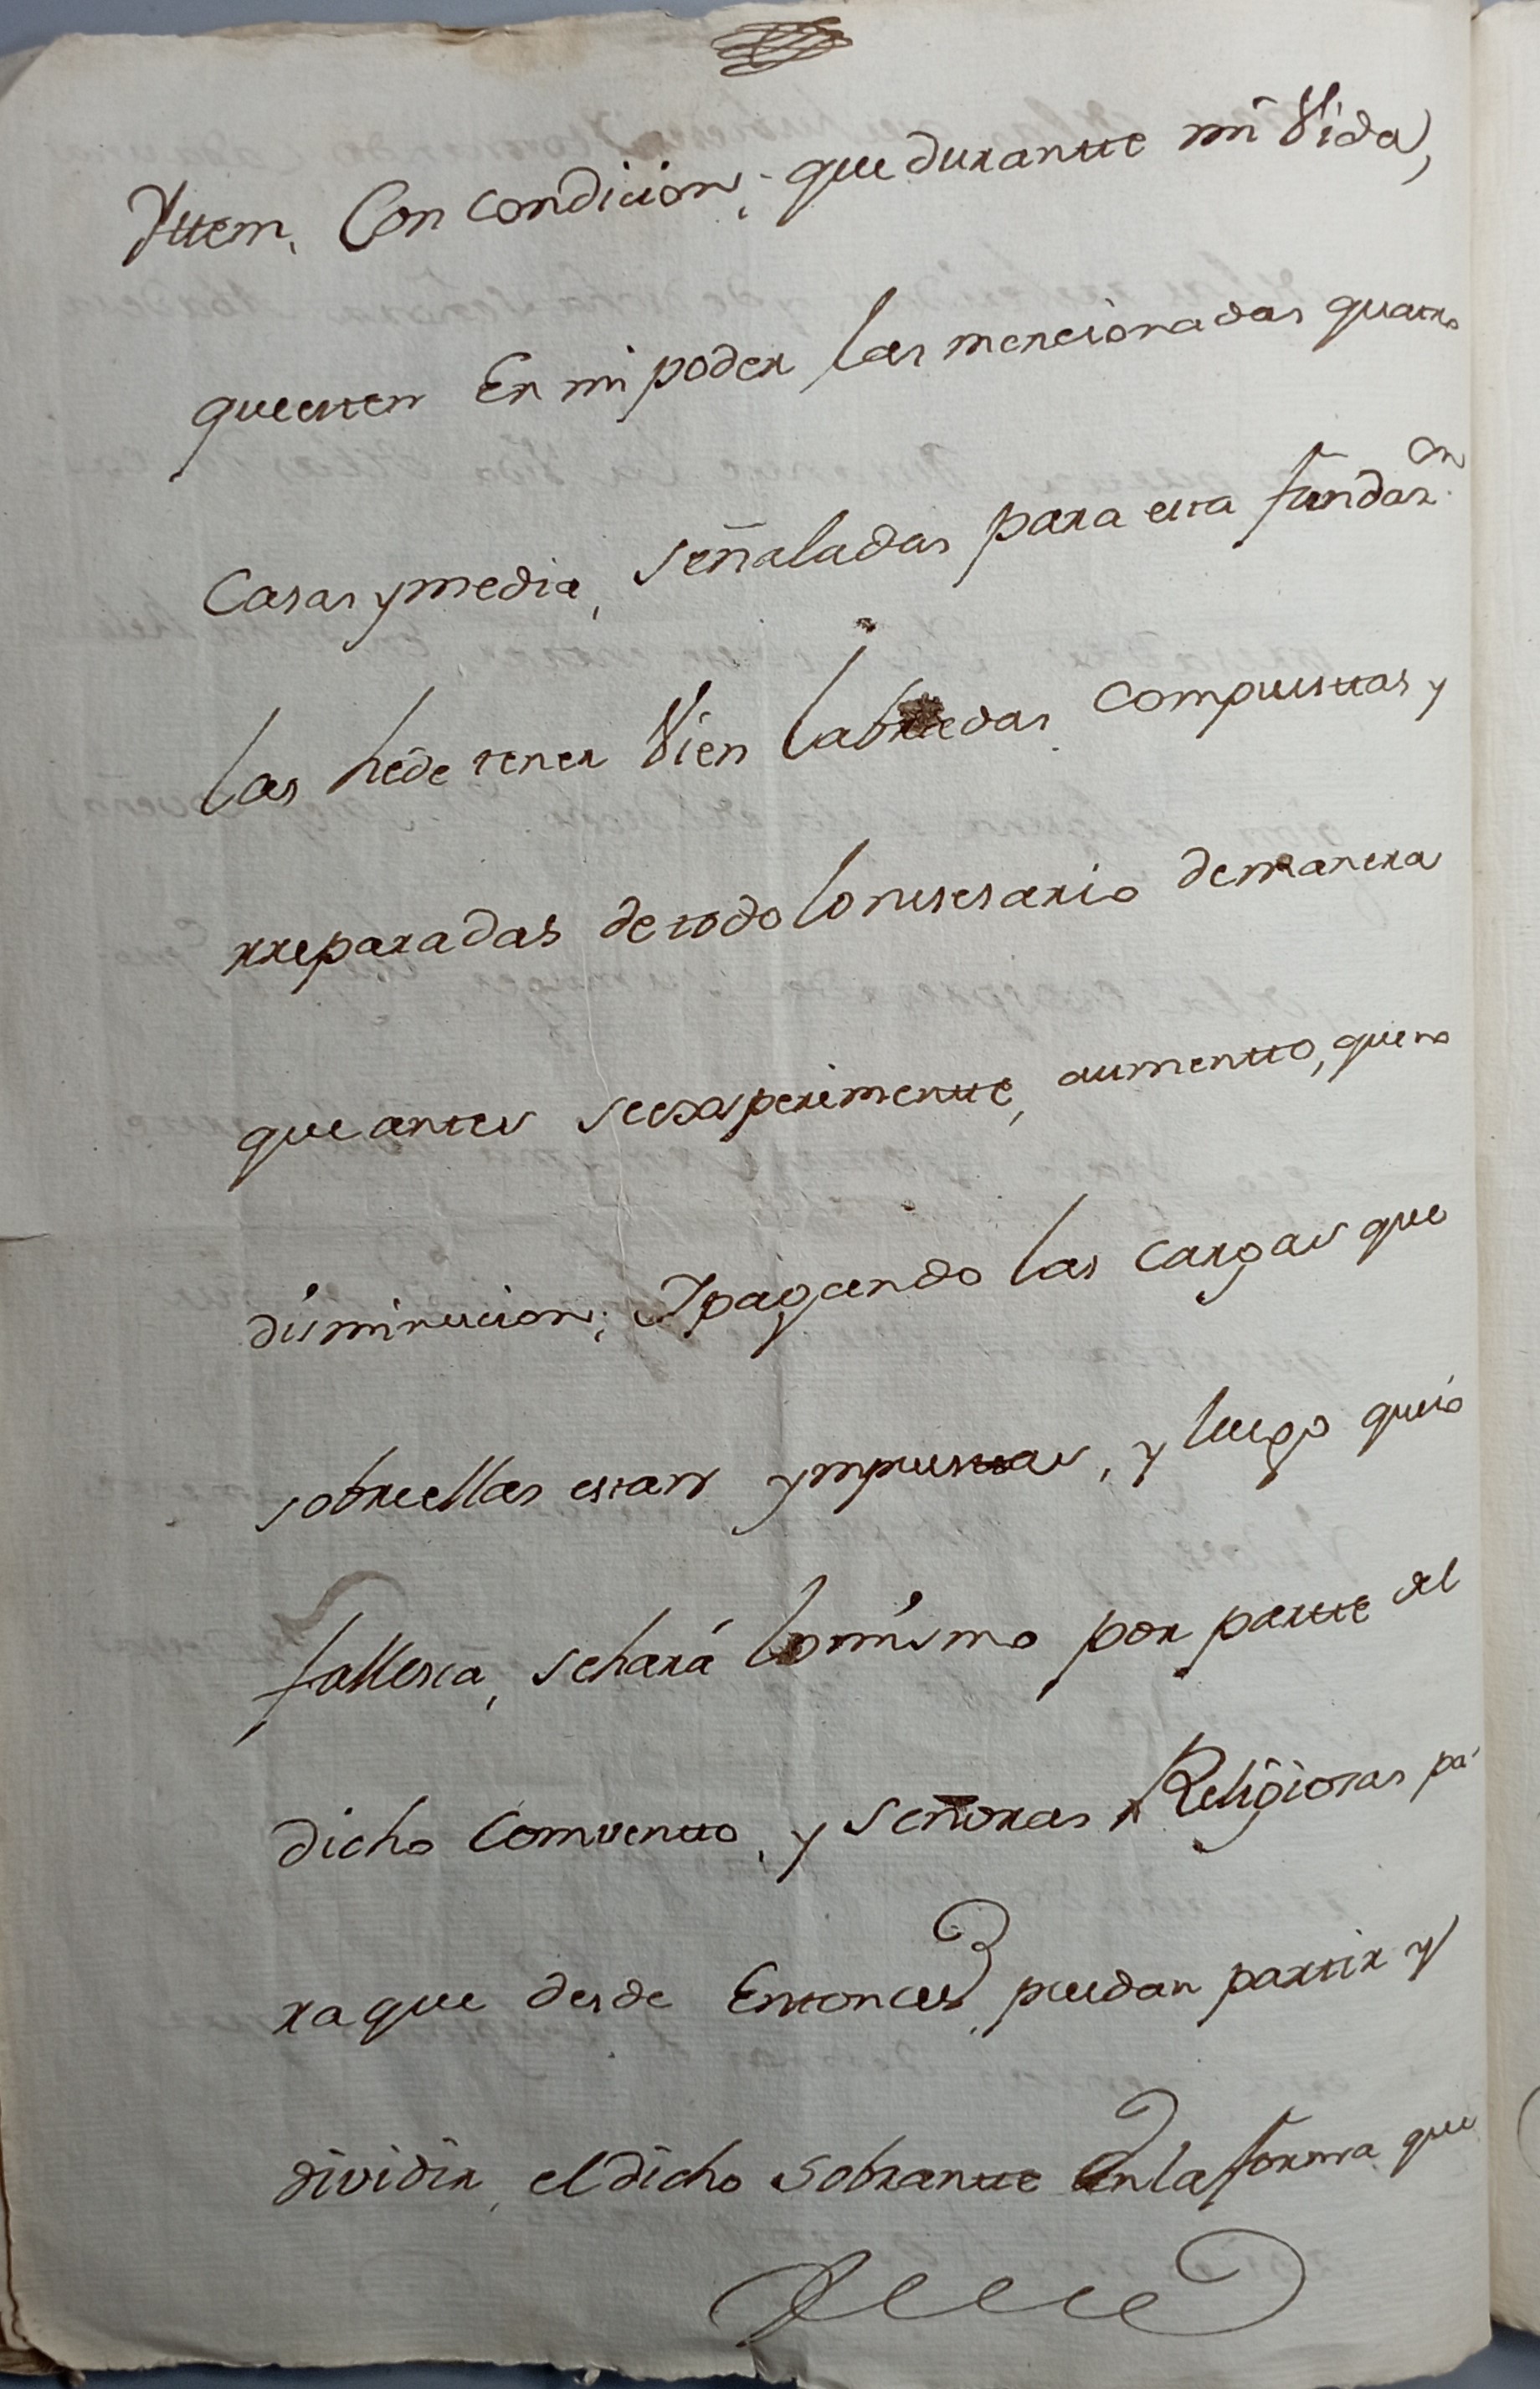 Yttem, Con condicion, que durantte mi Vida,
que esten En mi poder las mencionadas quatro
Casas y media, señaladas para esta fundaz.on
las hè de tener Vien labradas, compuestas y
rreparadas de todo lo nesesario de manera
que antes se esperimentte, aumentto, que no
disminucion; Y pagando las cargas que
sobre ellas estan ympuestas, y luego que io
fallesca, se hará lo mismo por partte del
dicho Comventto, y señoras Religiosas pa
ra que desde Entonces, puedan partir y
dividir, el dicho sobrantte En la forma que